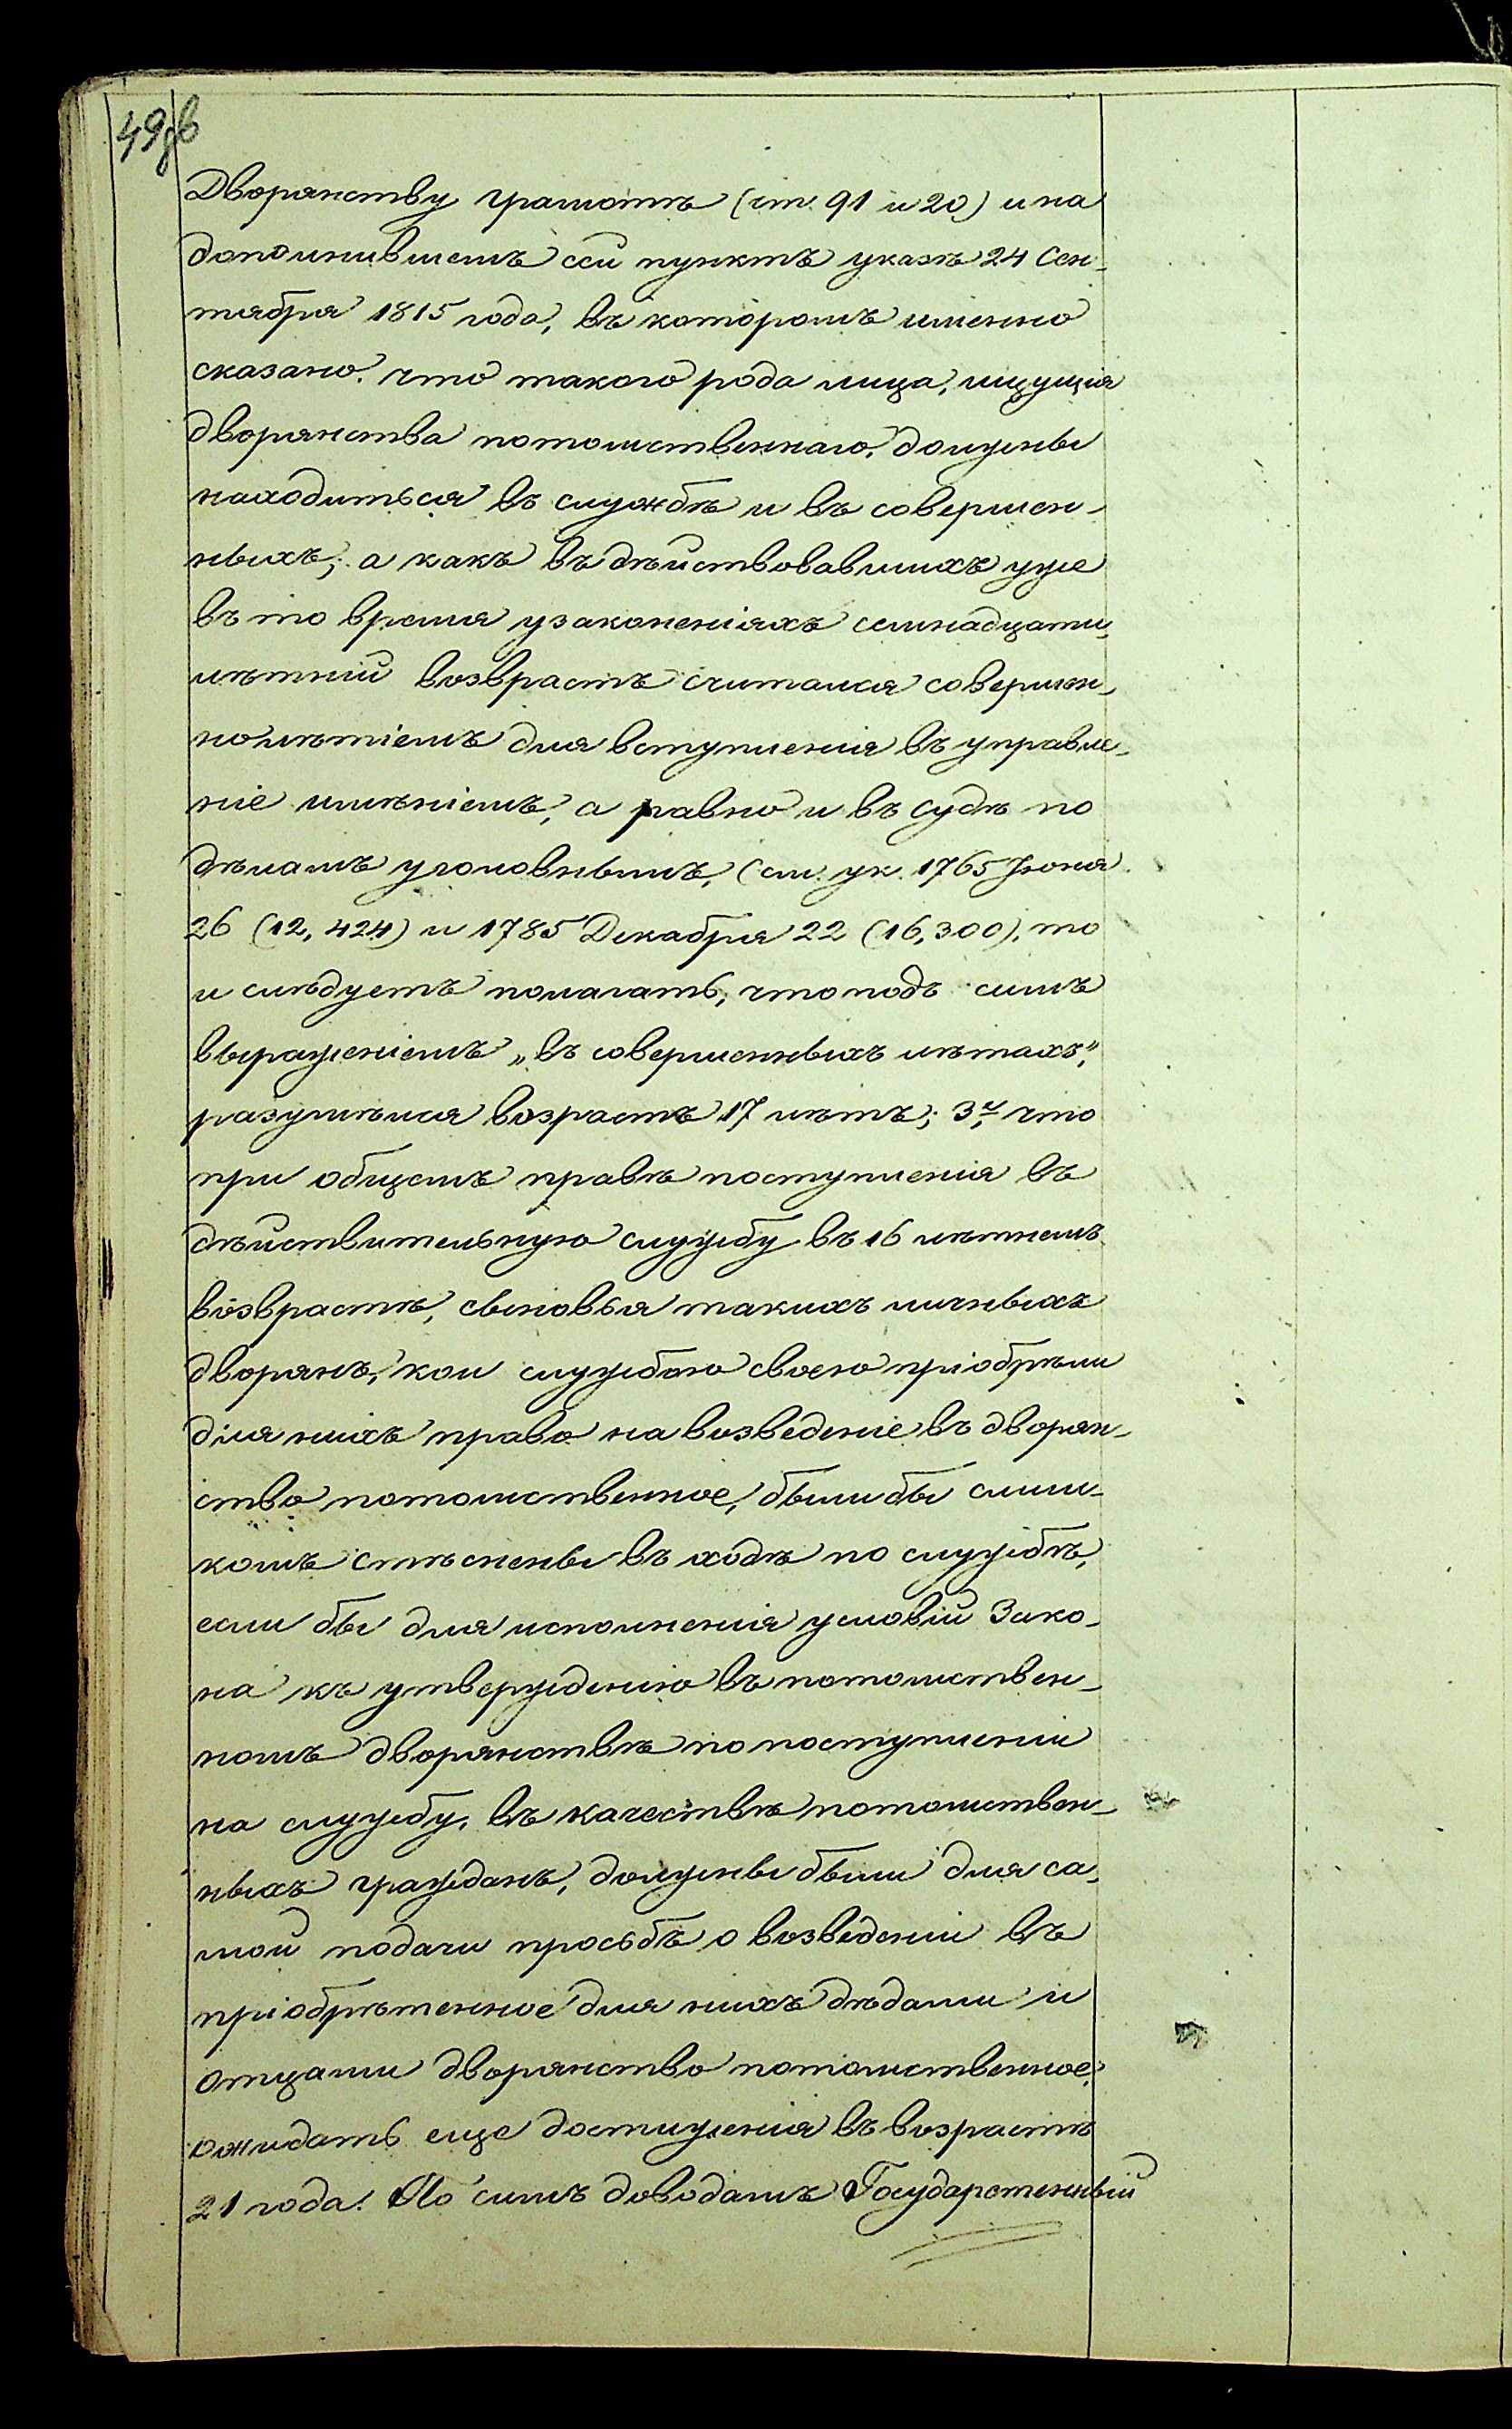 49об
Дворянству грамотѣ (ст. 91 и 20) и на
дополнившемъ сей пунктъ указѣ 24 Сен-
тября 1815 года, въ которомъ именно
сказано, что такого рода лица, ищущія
дворянства потомственнаго, должны
находиться въ службѣ и въ совершен-
ныхъ; а какъ въ дѣйствовавшихъ уже
въ то время узаконеніяхъ семнадцати-
лѣтній возврастъ считался совершен-
нолѣтіемъ для вступленія въ управле-
ніе имѣніемъ, а равно и въ судѣ по
дѣламъ уголовнымъ, (см. ук. 1765 Іюня
26 (12,424) и 1785 Декабря 22 (16,300), то
и слѣдуетъ полагать, что подъ симъ
выраженіемъ „въ совершенныхъ лѣтахъ",
разумѣлся возрастъ 17 лѣтъ; 3, что
при общемъ правѣ поступленія въ
дѣйствительную службу въ 16 лѣтнемъ
возврастѣ, сыновья такихъ личныхъ
дворянъ, кои службою своею пріобрѣли
для нихъ право на возведеніе въ дворян-
ство потомственное, были бы слиш-
комъ стѣснены въ ходѣ по службѣ,
если бы для исполненія условій Зако-
на къ утвержденію въ потомствен-
номъ дворянствѣ по поступленіи
на службу, въ качествѣ потомствен-
ныхъ гражданъ, должны были для са-
мой подачи просьбъ о возведеніи въ
пріобрѣтенное для нихъ дѣдами и
отцами дворянство потомственное,
ожидать еще достиженія въ возрастѣ
21 года. По симъ доводамъ Государстенный